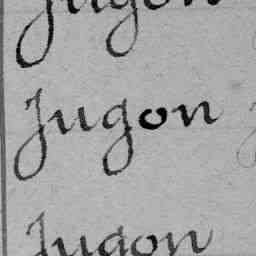 Jugon
Jugon
Jugon